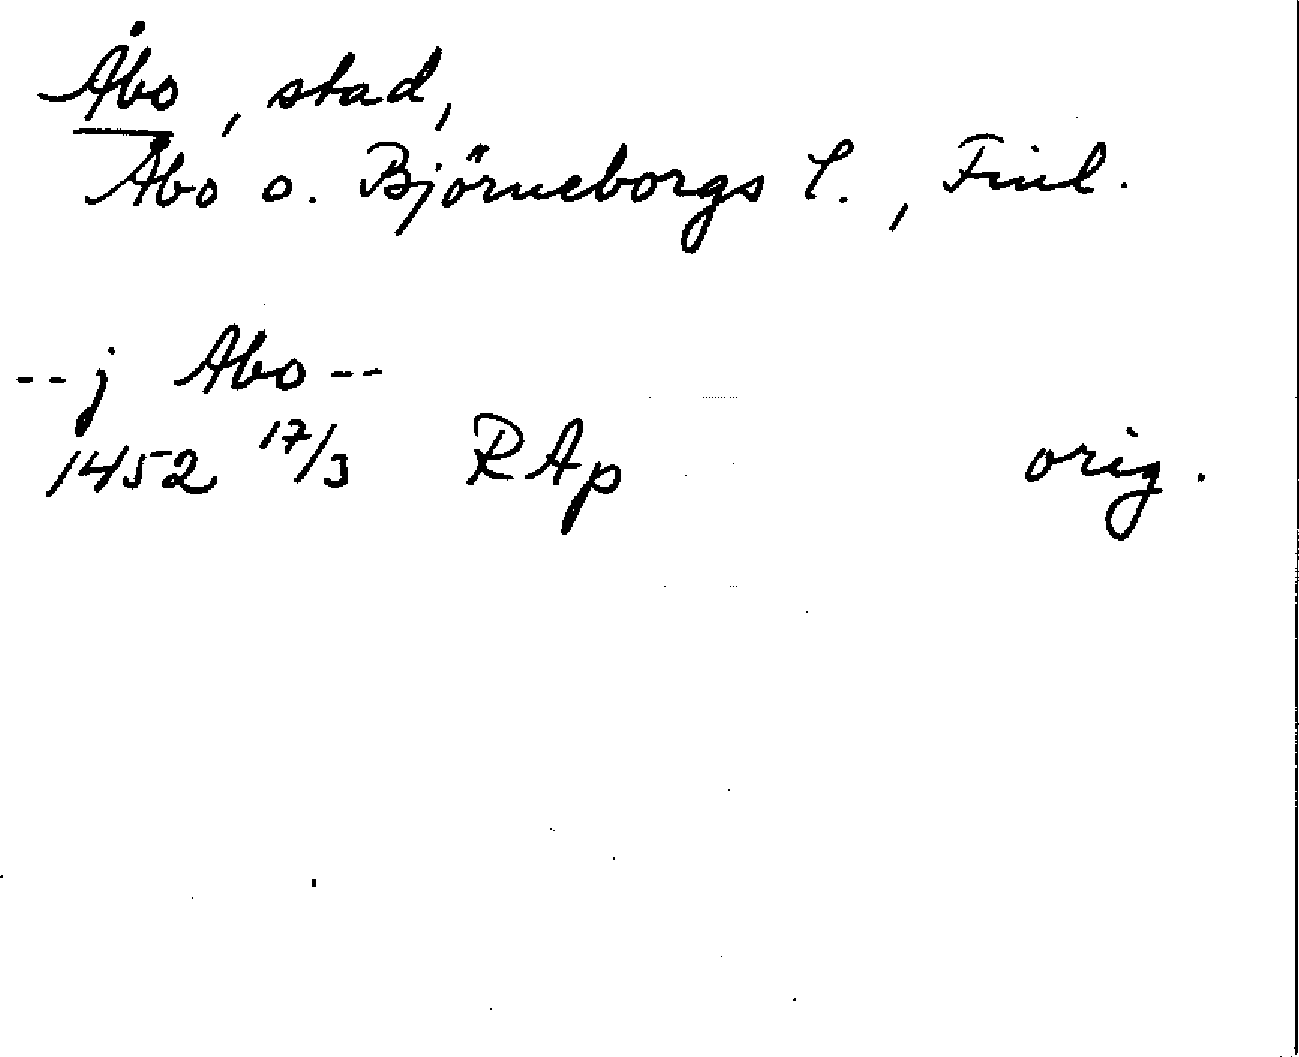 Åbo, stad,
Åbo o. Björneborgs l., Finl.
--j Abo--
1452 17/3 RAp orig.